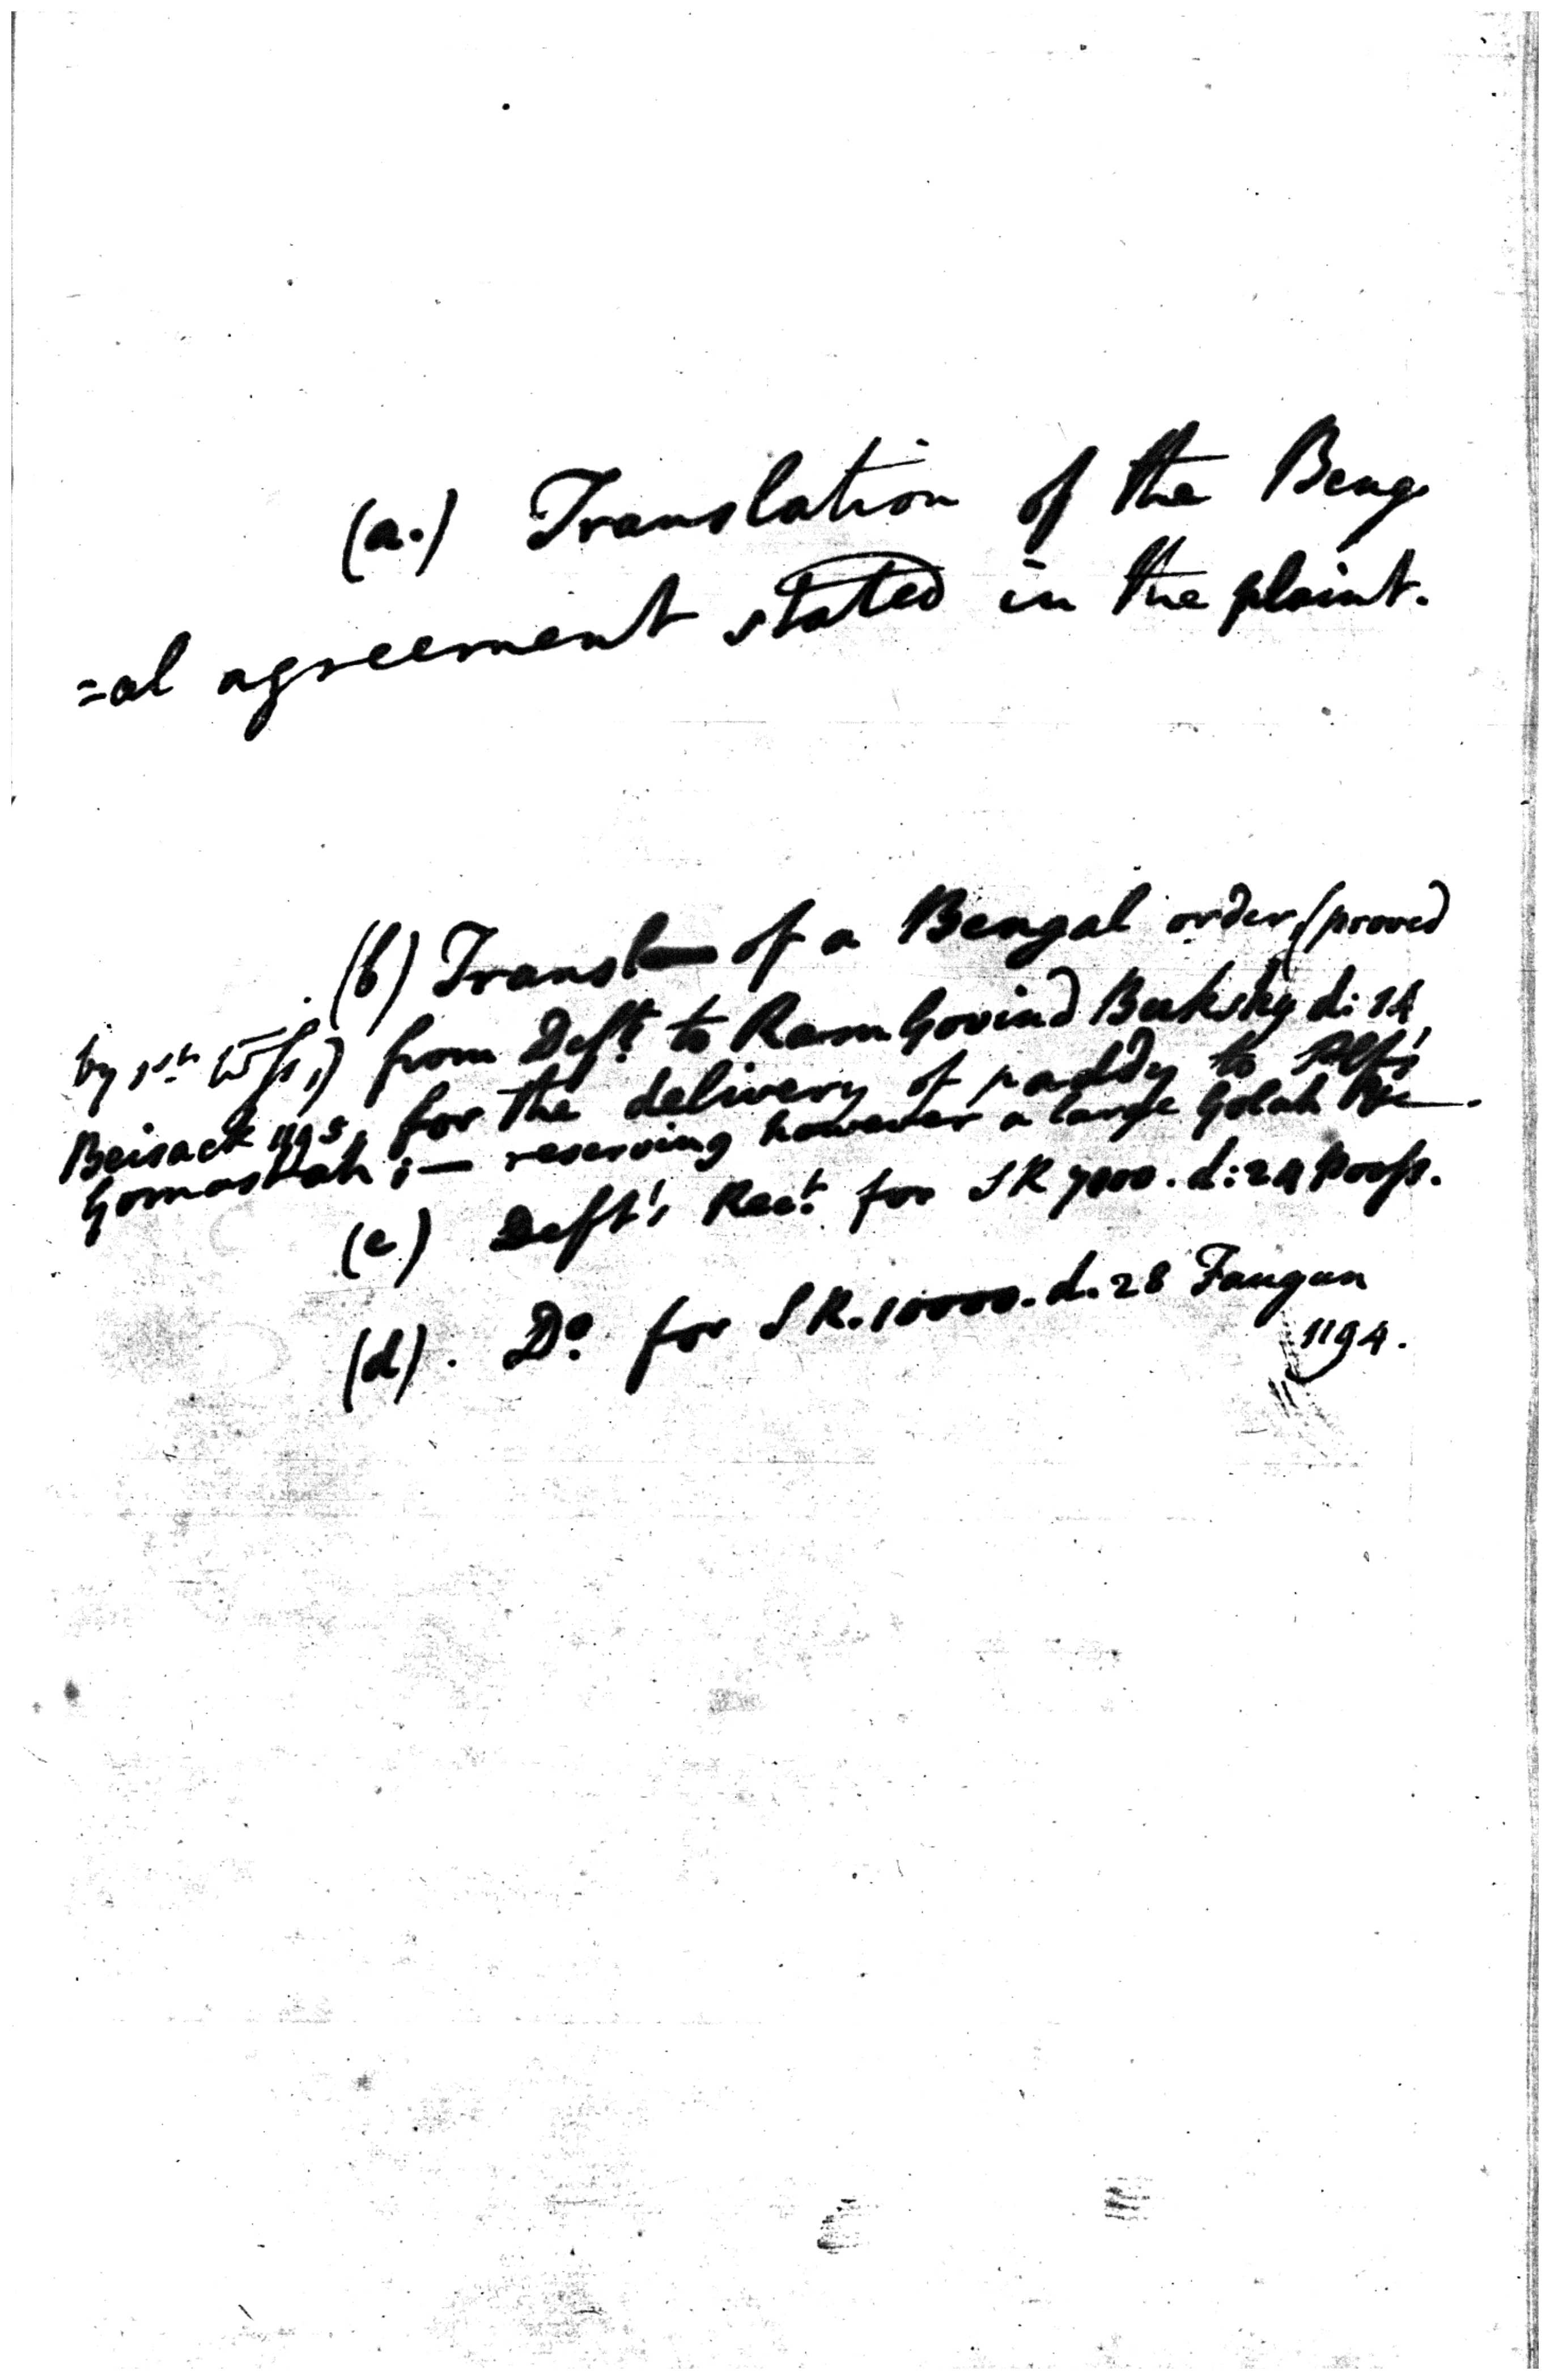 (a.) Translation of the Beng
=al agreement stated in the plaint.
(b) Transl— of a Bengal order, (proved
by 1st Wss,) from Deft. to Ram Govind Bukshy d: 14
Beisack 1195, for the delivery of paddy to Plf's
Gomastah; — reserving however a large Golah &c—.
(c) Deft's Rect. for SR 7000. d: 24 Poos.
(d). Do. for SR. 10000. d. 28 Faugun
1194.